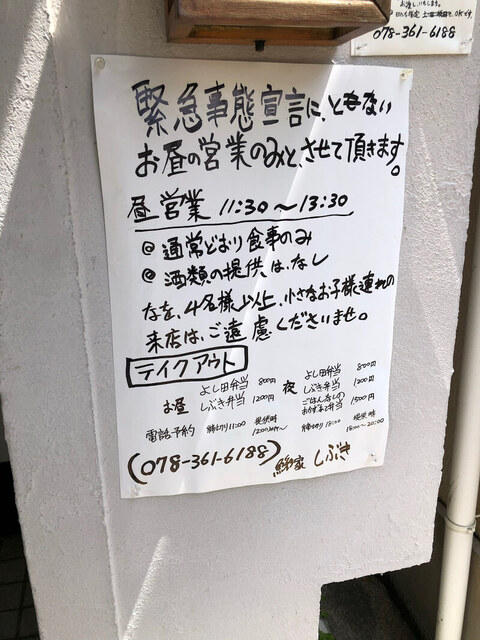 078-361-6188
緊急事態宣言に、ともない
お昼の営業のみと、させて頂きます。
昼営業 11:30〜13:30
@ 通常どおり食事のみ
@ 酒類の提供は、なし
なを、4名様以上、小さなお子様連れの
来店は、ご遠慮くださいませ。
テイクアウト
お昼 よし田弁当 800円
しぶき弁当 1200円
夜 よし田弁当 800円
しぶき弁当 1200円
ごはんなしの
おかず弁当 1500円
電話予約 締切り11:00
締切り18:00
18:00〜20:00
(078-361-6188)
しぶき